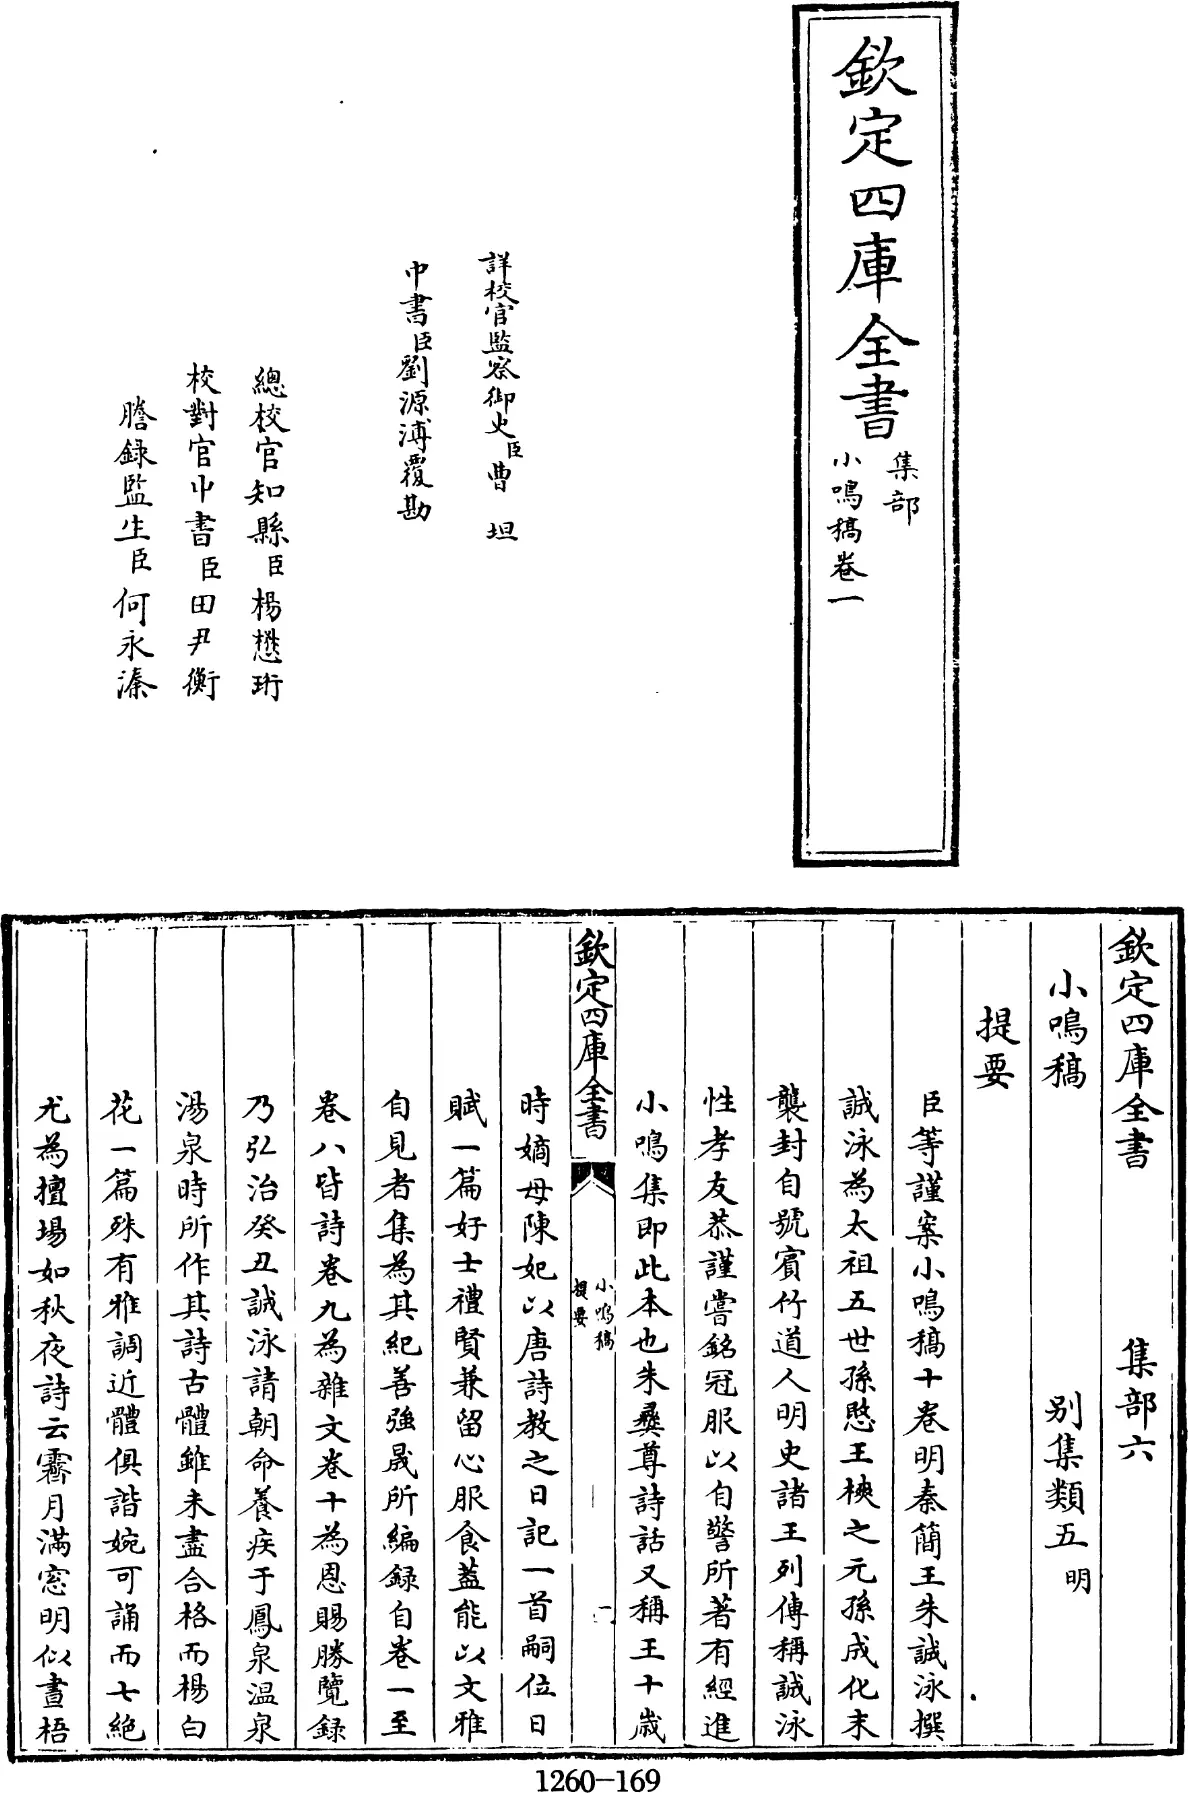 欽定四庫全書
集部
小鳴稿卷一
詳校官監察御史臣曹坦
中書臣劉源溥覆勘
總校官知縣臣楊懋珩
校對官中書臣田尹衡
謄錄監生臣何永溱
欽定四庫全書 集部六
小鳴稿 别集類五明
提要
臣等謹案小鳴稿十卷明秦簡王朱誠泳撰
誠泳為太祖五世孫愍王樉之元孫成化末
襲封自號賓竹道人明史諸王列傳稱誠泳
性孝友恭謹嘗銘冠服以自警所著有經進
小鳴集即此本也朱彝尊詩話又稱王十歲
欽定四庫全書
小鳴稿
提要
一
時嫡母陳妃以唐詩教之日記一首嗣位日
賦一篇好士禮賢兼留心服食蓋能以文雅
自見者集為其紀善強晟所編錄自卷一至
卷八皆詩卷九為雜文卷十為恩賜勝覽錄
乃弘治癸丑誠泳請朝命養疾于鳳泉温泉
湯泉時所作其詩古體雖未盡合格而楊白
花一篇殊有雅調近體俱諧婉可誦而七絶
尤為擅場如秋夜詩云霽月滿窓明似晝梧
1260-169